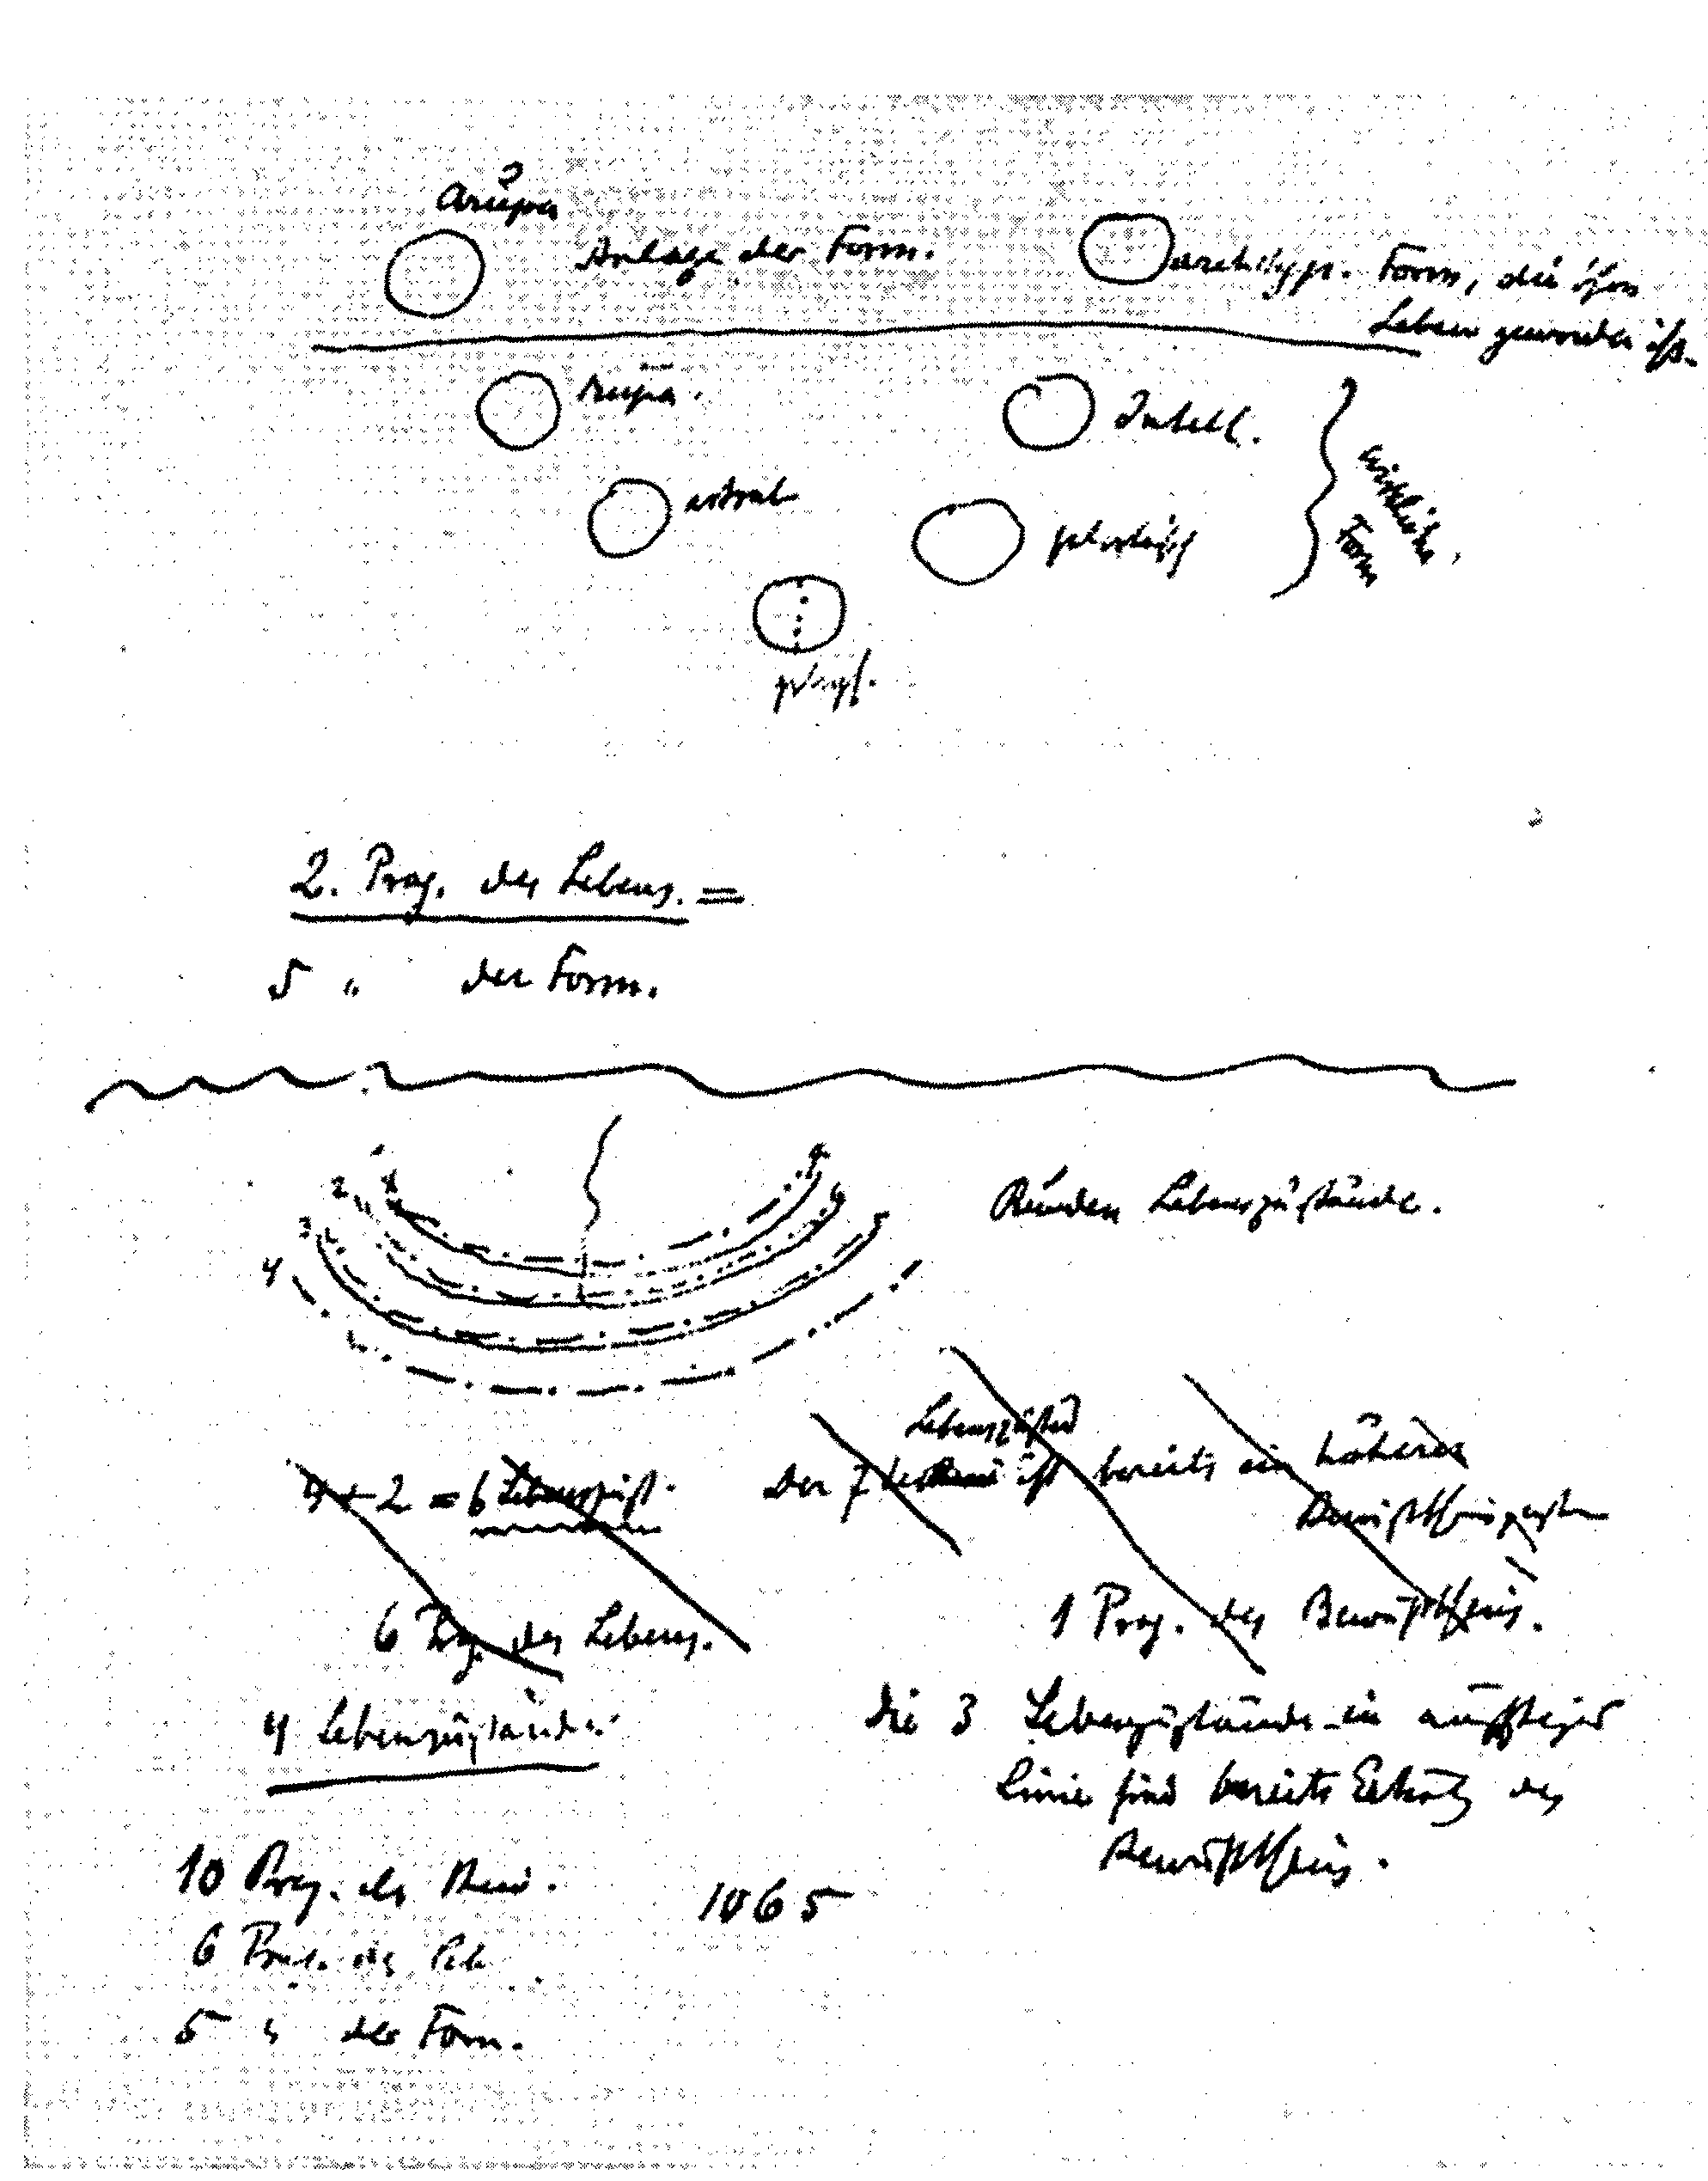 Arupa
Anlage der Form.
archtyp. Form, die schon
Leben geworden ist.
rupa.
Intell.
astral
plastisch
wirkliche
Form
phys.
2. Prag. des Lebens. =
5 " der Form.
1
2
3
4
Runden Lebenszustände.
4 + 2 = 6 Lebenszust.
Lebenszustand
Der 7 ist bereits ein höherer
Bewußtseinszustand
6 Prag. des Lebens.
1 Prag. des Bewußtseins.
4 Lebenszustände
die 3 Lebenszustände in aufsteigender
Linie sind bereits des
Bewußtseins.
10 Prag. des Bew.
1065
6 Prag. des Leb
5 " der Form.